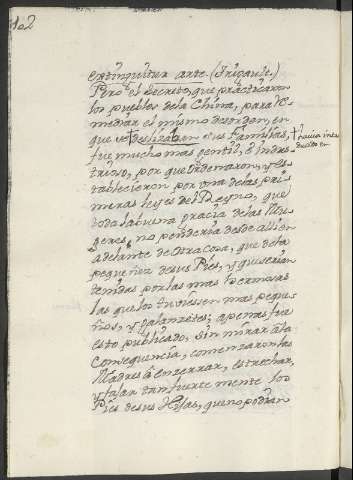 102
extinguitur arte. (Trigault.)
Pero el secreto, que practicaron
los pueblos de la China, para re-
mediar el mismo desorden, en
que se † deslizaban sus Familias,
† havia intro
ducido en
fue mucho mas gentil, è Indus-
trioso, por que ordenaron, y es-
tablecieron por una de las pri-
meras leyes del Reyno, que
toda la buena gracia de las Mu-
geres, no penderia desde alli en
adelante de otra cosa, que de la
pequeñez de sus Pies, y que serian
tenidas por las mas hermosas
las que los tuviesen mas peque-
ños, y galancetes; apenas fue
esto publicado, sin mirar à la
consequencia, comenzaron las
Madres à encerrar, estrechar,
y fajar tan fuerte mente los
Pies de sus Hijas, que no podian